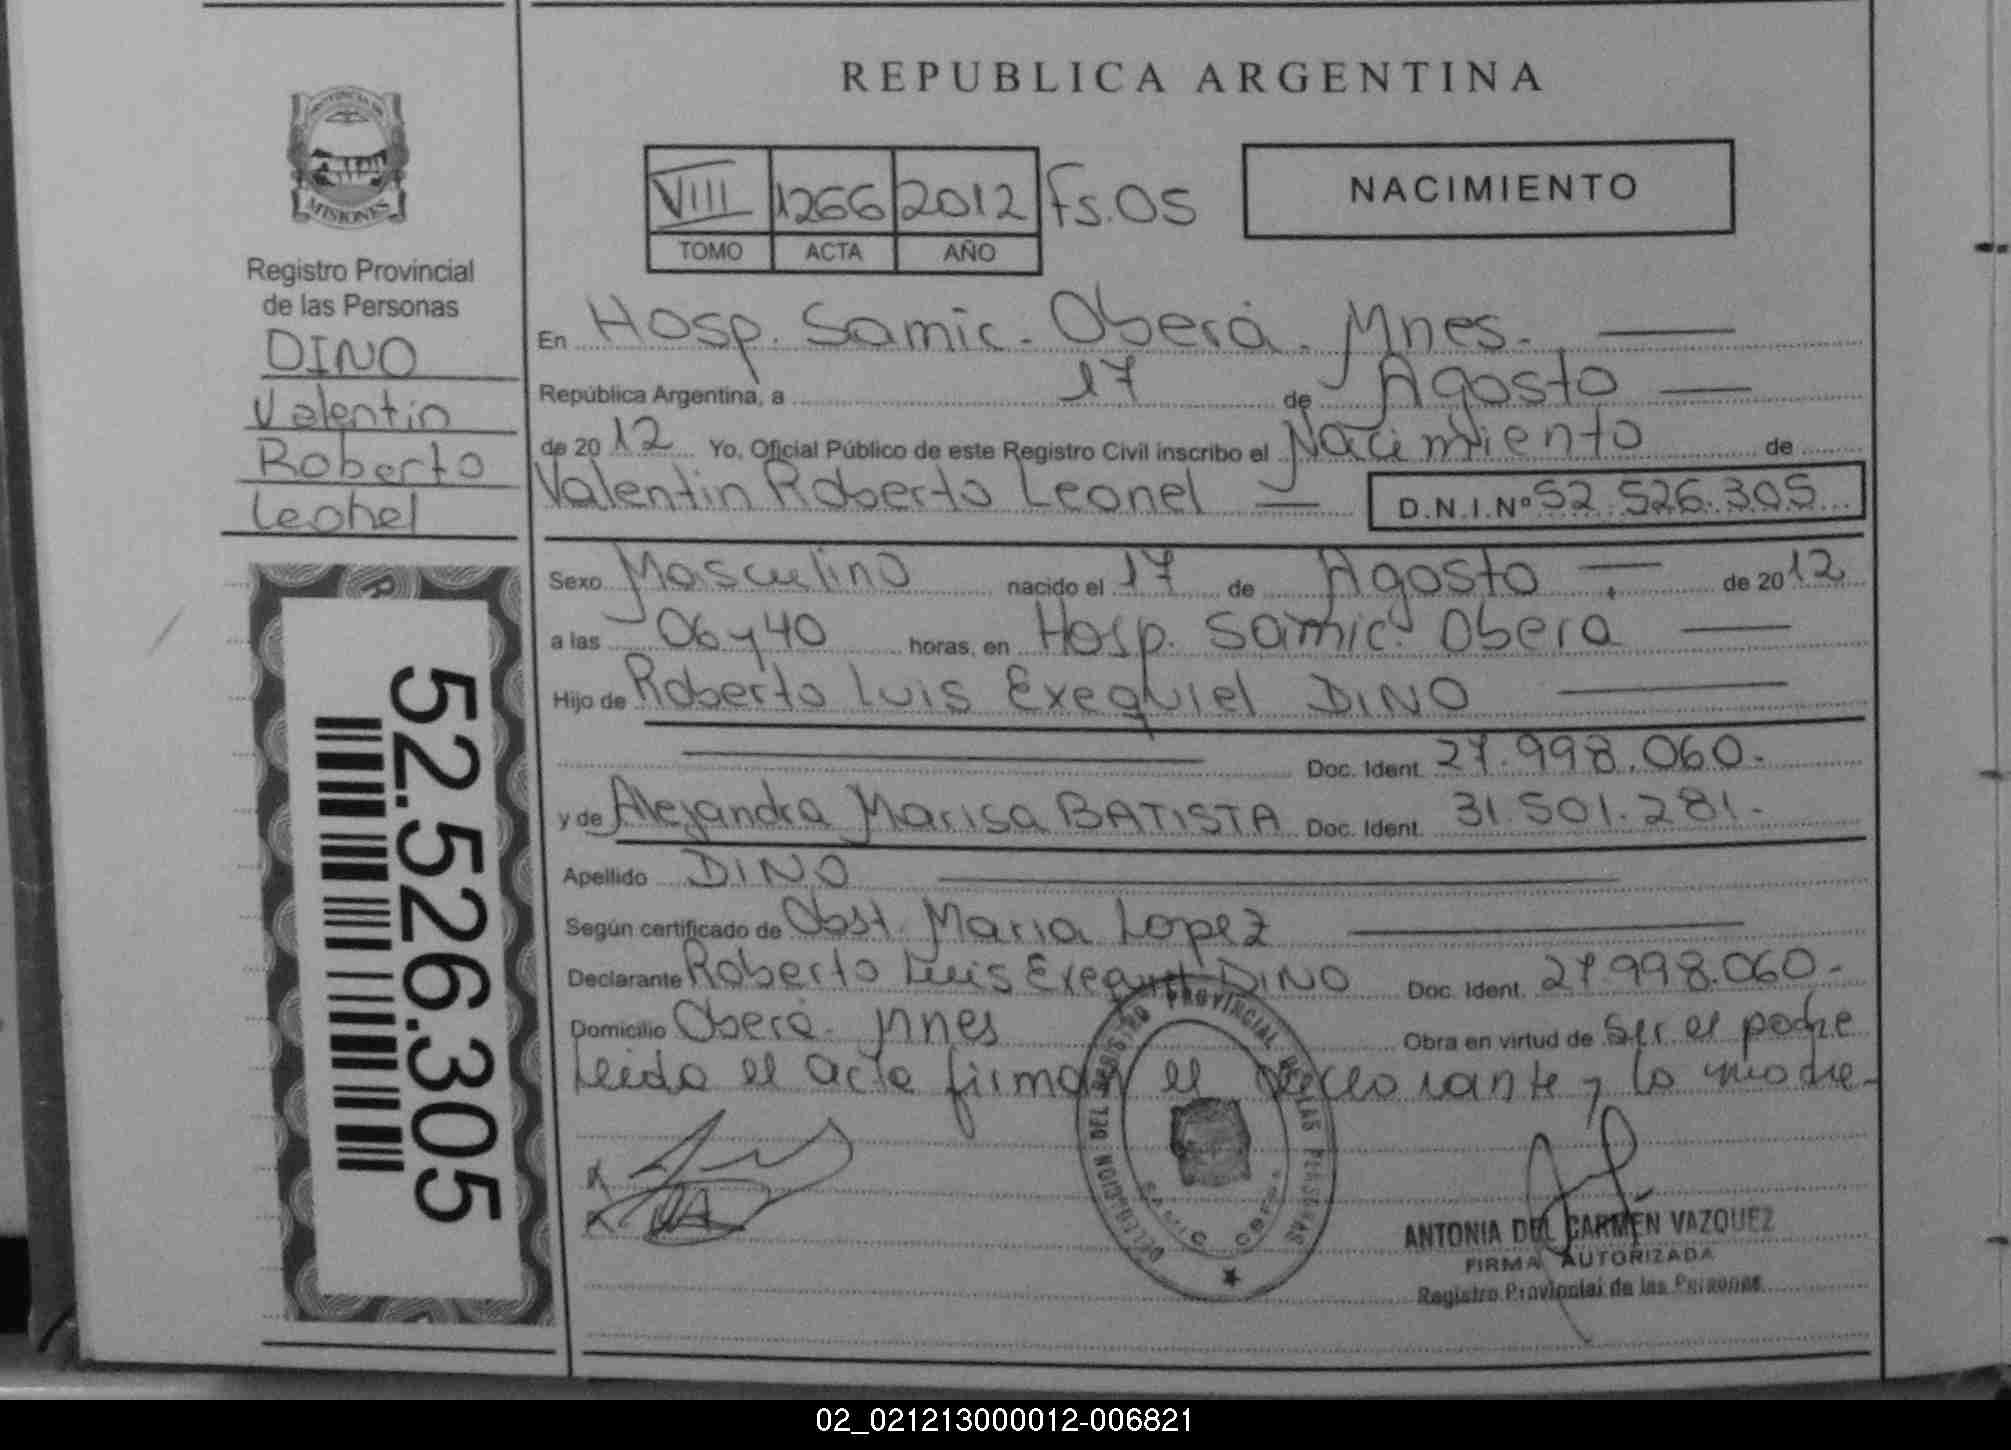 REPUBLICA ARGENTINA
PROVINCIA DE
MISIONES
Registro Provincial
de las Personas
DINO
Valentin
Roberto
Leonel
52.526.305
VIII 1266 2012 Fs.05
TOMO ACTA AÑO
NACIMIENTO
En Hosp. Samic. Oberá. Mnes.
República Argentina, a 17 de Agosto
de 2012 Yo, Oficial Público de este Registro Civil inscribo el Nacimiento de
Valentin Roberto Leonel D.N.I.Nº 52.526.305
Sexo Masculino nacido el 17 de Agosto de 2012
a las 06 y 40 horas, en Hosp. Samic. Oberá
Hijo de Roberto Luis Exequiel DINO
Doc. Ident. 27.998.060.
y de Alejandra Marisa BATISTA Doc. Ident. 31.501.281.
Apellido DINO
Según certificado de Obst. Maria Lopez
Declarante Roberto Luis Exequiel DINO Doc. Ident. 27.998.060.
Domicilio Oberá. Mnes Obra en virtud de ser el padre
Leida el acta firman el declarante y la madre.
DELEGACION DEL REGISTRO PROVINCIAL DE LAS PERSONAS
SAMIC OBERA
ANTONIA DEL CARMEN VAZQUEZ
FIRMA AUTORIZADA
Registro Provincial de las Personas
02_021213000012-006821